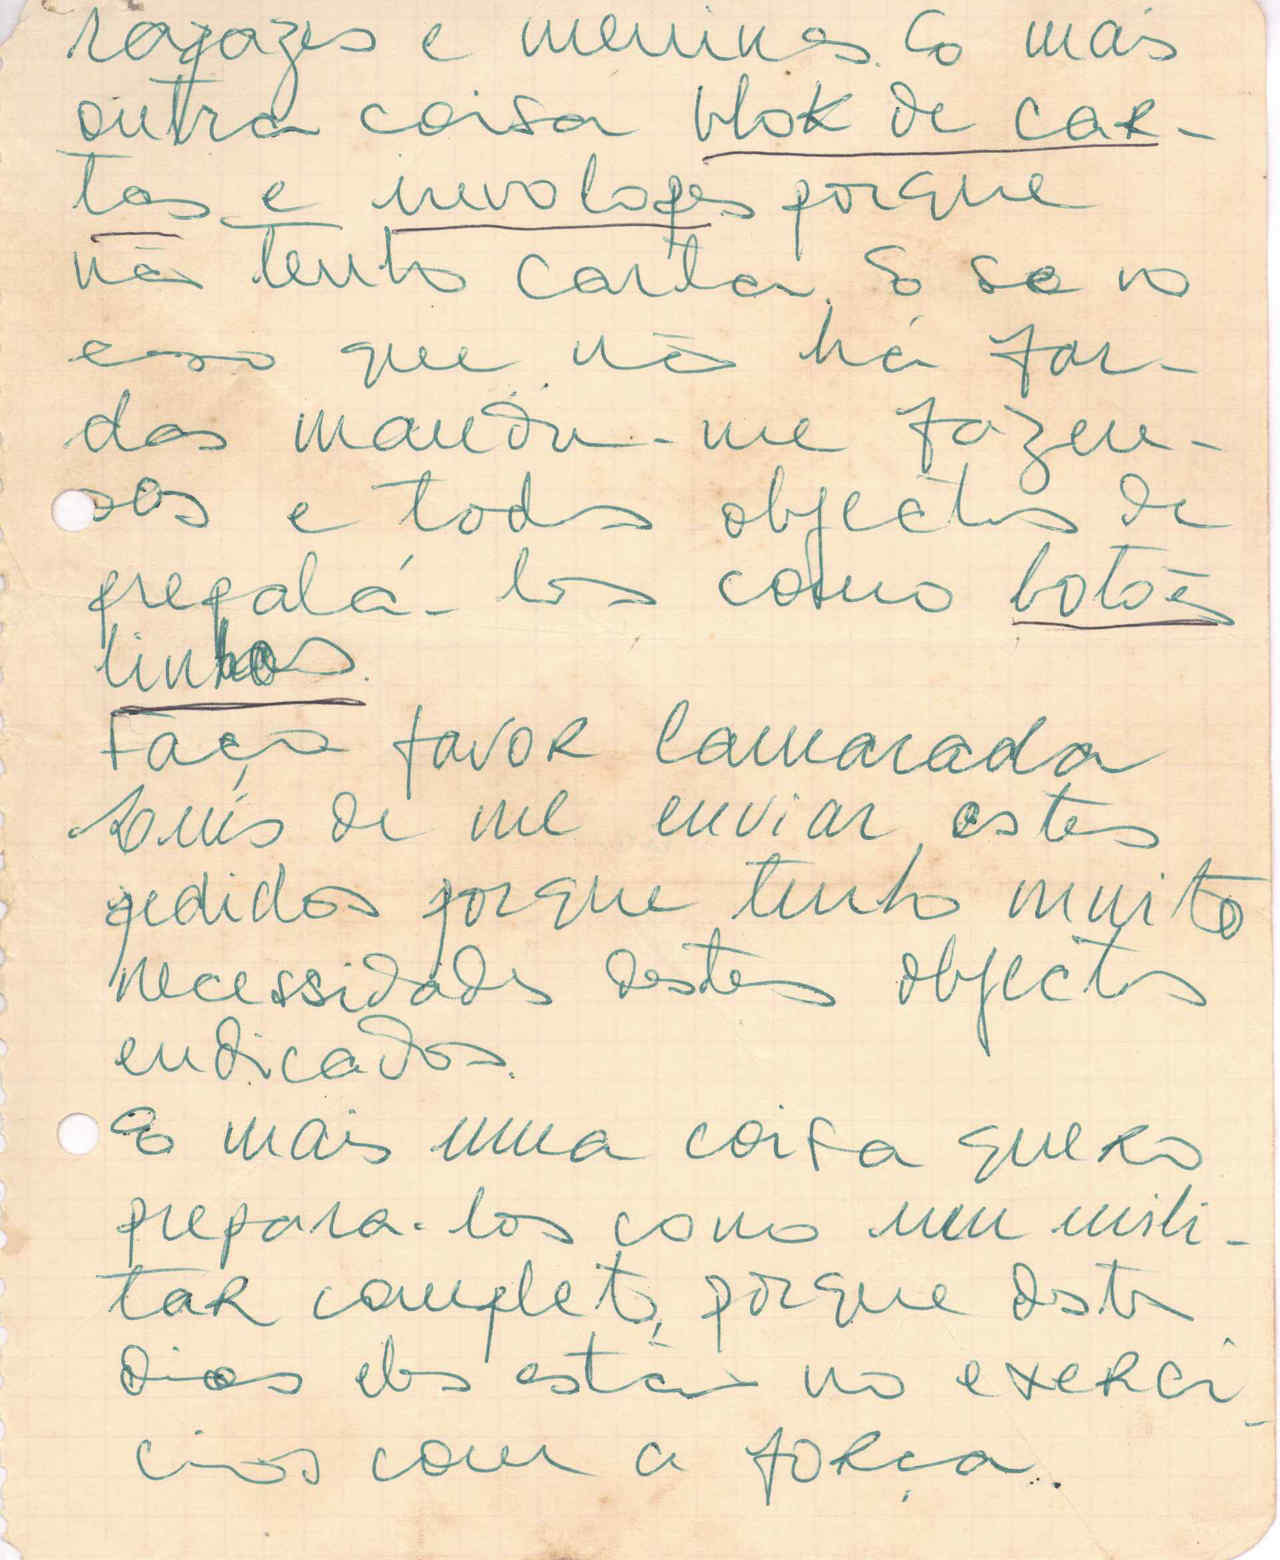 ragazes e meninas. E mais
outra coisa blok de car-
tas e invologes porque
não tenho carta. E se no
caso que não há far-
das manda-me fazen-
das e todos objectos de
pregalá-los como botões
linhas.
Faça favor Camarada
Luís de me enviar estes
pedidos porque tenho muito
necessidades destes objectos
endicados.
E mais uma coisa quero
prepara-los como um mili-
tar completo, porque destes
dias eles estão no exercí-
cios com a força.